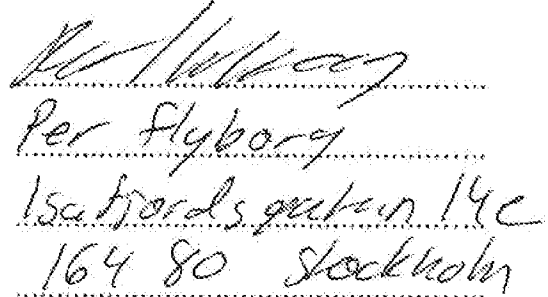 Per Flyborg
Per Flyborg
Isafjordsgatan 14c
164 80 Stockholm